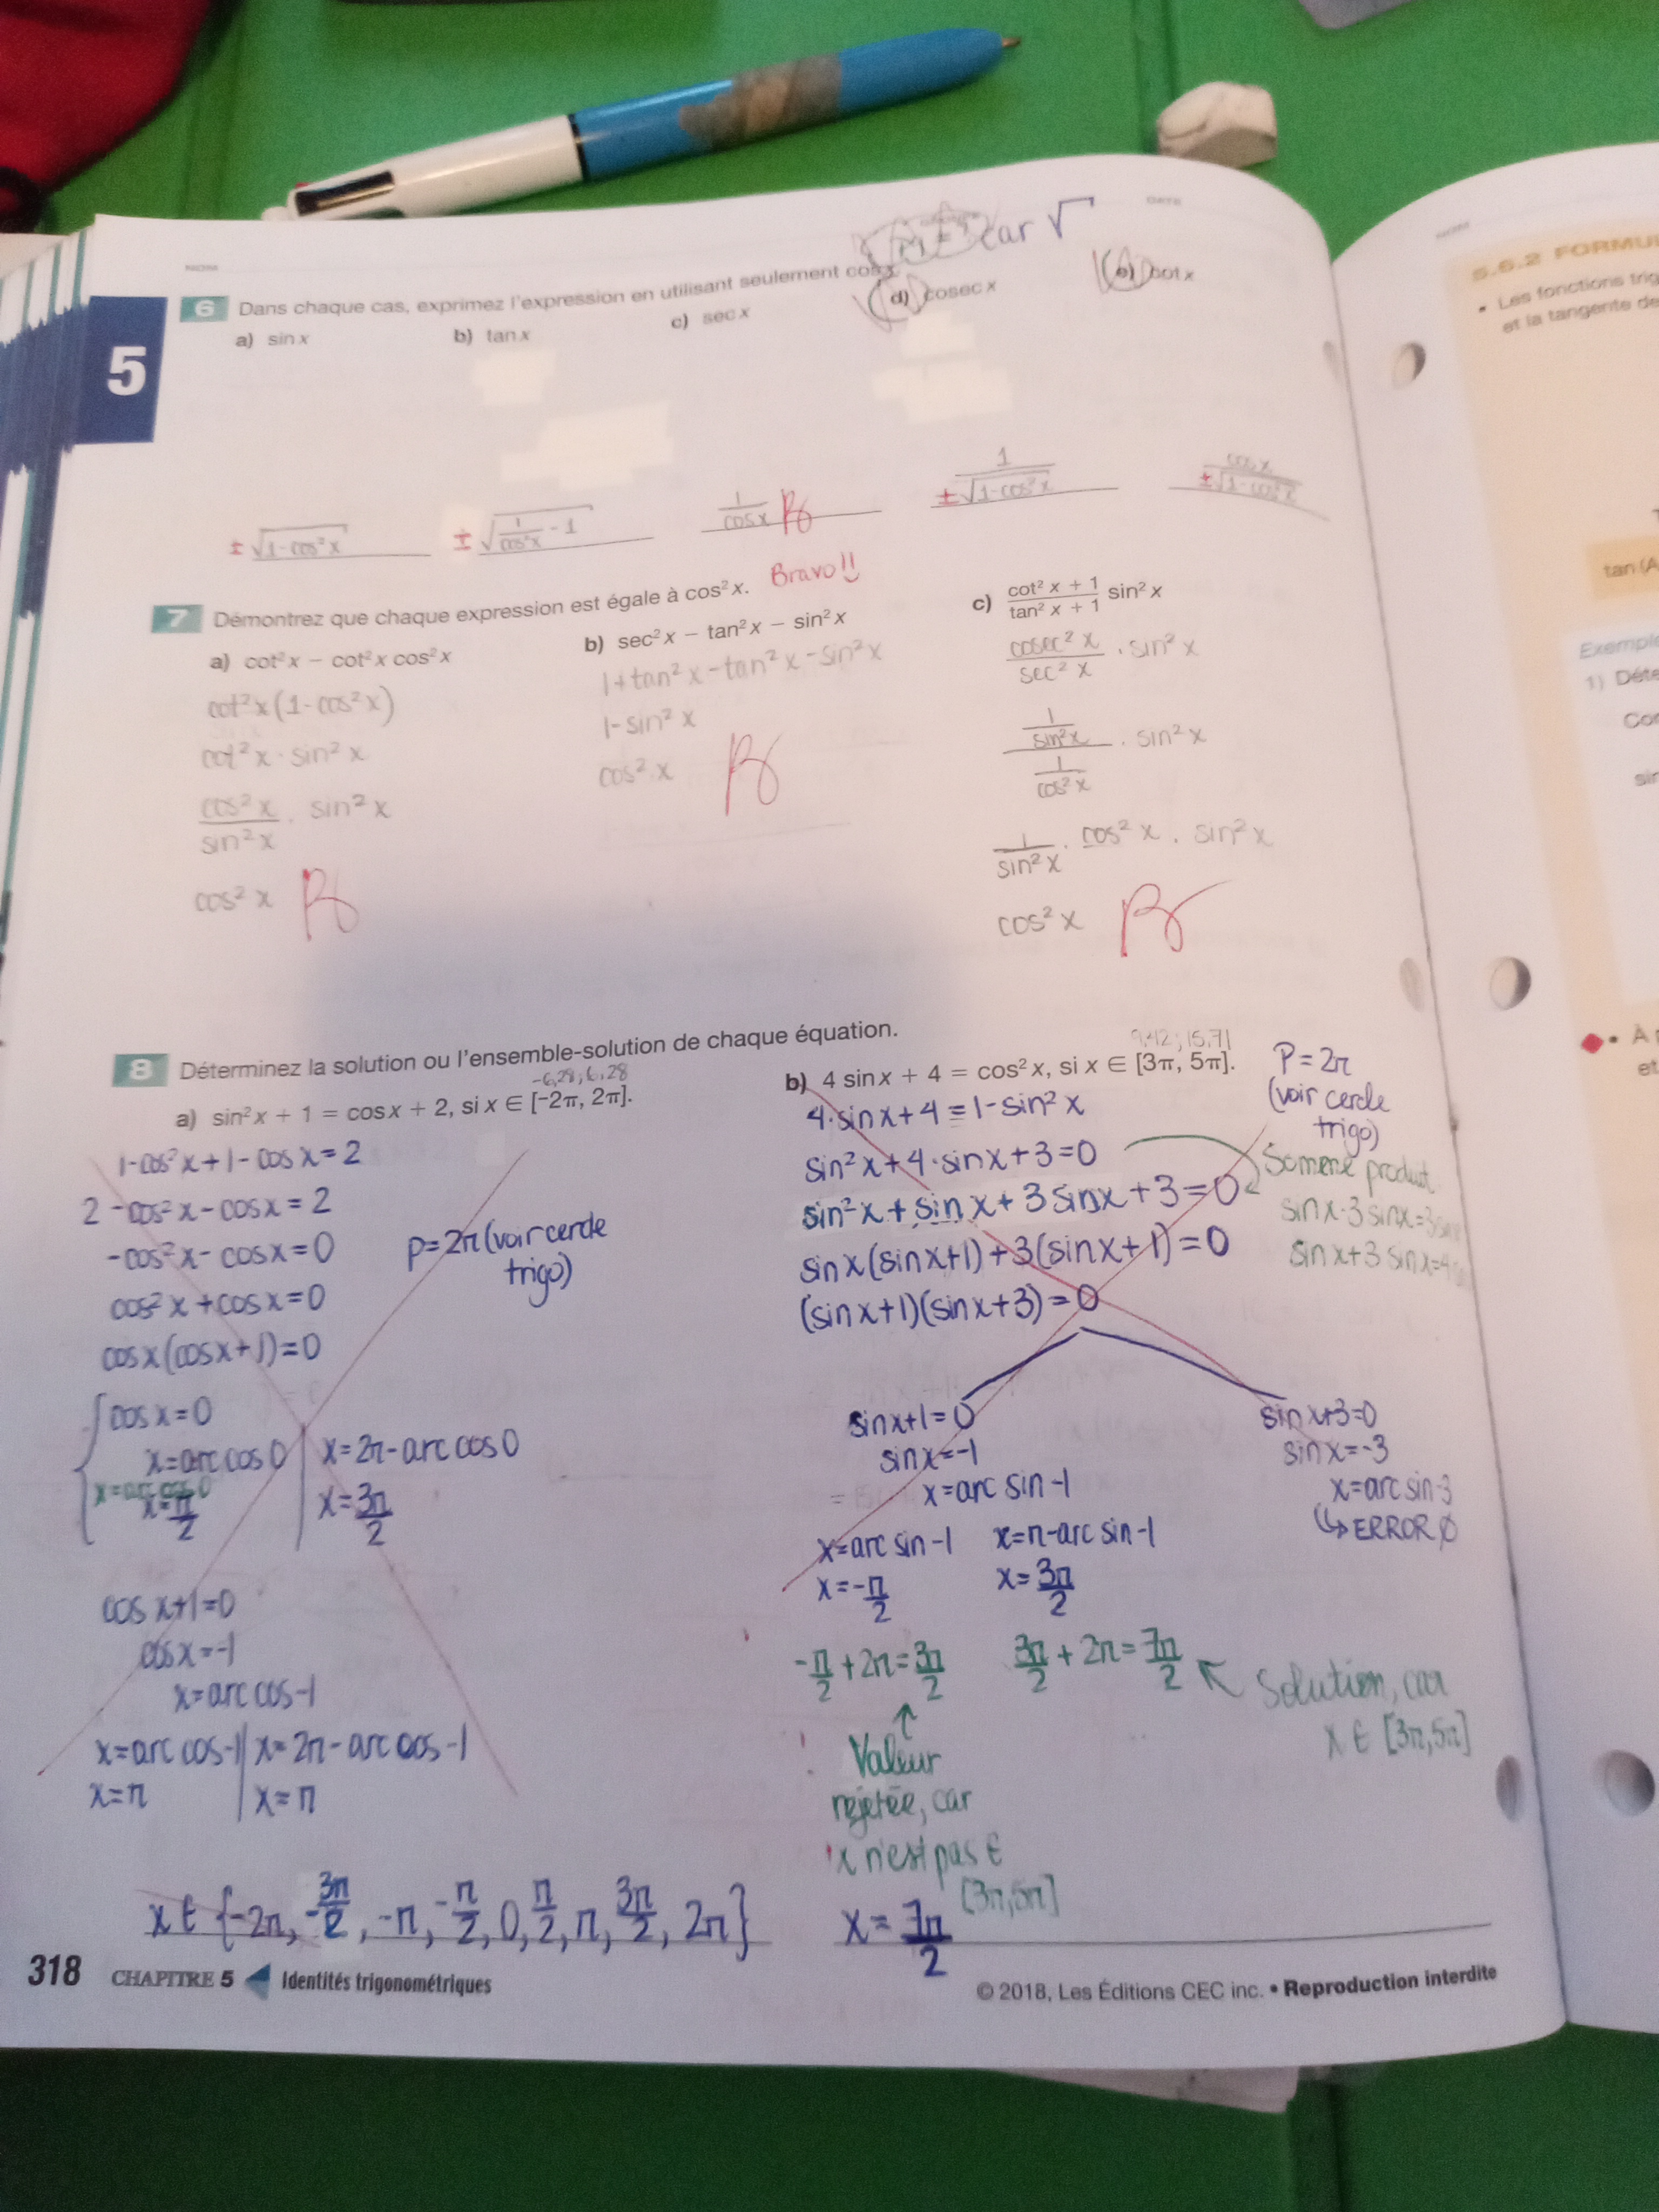 car √
NOM
DATE
5
6 Dans chaque cas, exprimez l'expression en utilisant seulement cos x.
a) sin x b) tan x c) sec x d) cosec x e) cot x
± √(1-cos²x) ± √(1/cos²x - 1) 1/cos x ± 1/√(1-cos²x) ± cos x/√(1-cos²x)
Bravo!!
7 Démontrez que chaque expression est égale à cos² x.
a) cot² x − cot² x cos² x
cot² x (1-cos² x)
cot² x · sin² x
cos² x / sin² x · sin² x
cos² x
b) sec² x − tan² x − sin² x
1+tan² x-tan² x-sin² x
1-sin² x
cos² x
c) (cot² x + 1)/(tan² x + 1) sin² x
cosec² x / sec² x · sin² x
(1/sin² x)/(1/cos² x) · sin² x
1/sin² x · cos² x · sin² x
cos² x
8 Déterminez la solution ou l'ensemble-solution de chaque équation.
-6,28; 6,28
a) sin² x + 1 = cos x + 2, si x ∈ [−2π, 2π].
1-cos² x+1-cos x=2
2-cos² x-cos x=2
-cos² x-cos x=0
cos² x+cos x=0
cos x(cos x+1)=0
P=2π (voir cercle
trigo)
cos x=0
x=arc cos 0 x=2π-arc cos 0
x=arc cos 0
x=π/2 x=3π/2
cos x+1=0
cos x=-1
x=arc cos-1
x=arc cos-1 x=2π-arc cos-1
x=π x=π
x ∈ {-2π, -3π/2, -π, -π/2, 0, π/2, π, 3π/2, 2π}
9,42; 15,71
b) 4 sin x + 4 = cos² x, si x ∈ [3π, 5π].
P=2π
(voir cercle
trigo)
4·sin x+4=1-sin² x
sin² x+4·sin x+3=0
sin² x+sin x+3 sin x+3=0
sin x(sin x+1)+3(sin x+1)=0
(sin x+1)(sin x+3)=0
produit
sin x·3 sin x=3
sin x+3 sin x=4
sin x+1=0 sin x+3=0
sin x=-1 sin x=-3
x=arc sin-1 x=arc sin-3
↳ ERROR ∅
x=arc sin-1 x=π-arc sin-1
x=-π/2 x=3π/2
-π/2+2π=3π/2 3π/2+2π=7π/2
Solution, car
x ∈ [3π,5π]
Valeur
rejetée, car
x n'est pas ∈
[3π,5π]
x=7π/2
318 CHAPITRE 5 Identités trigonométriques
© 2018, Les Éditions CEC inc. • Reproduction interdite
NOM
5.6.2 FORMU
• Les fonctions trig
et la tangente de
tan (A
Exemple
1) Déte
Cor
sin
• À
et